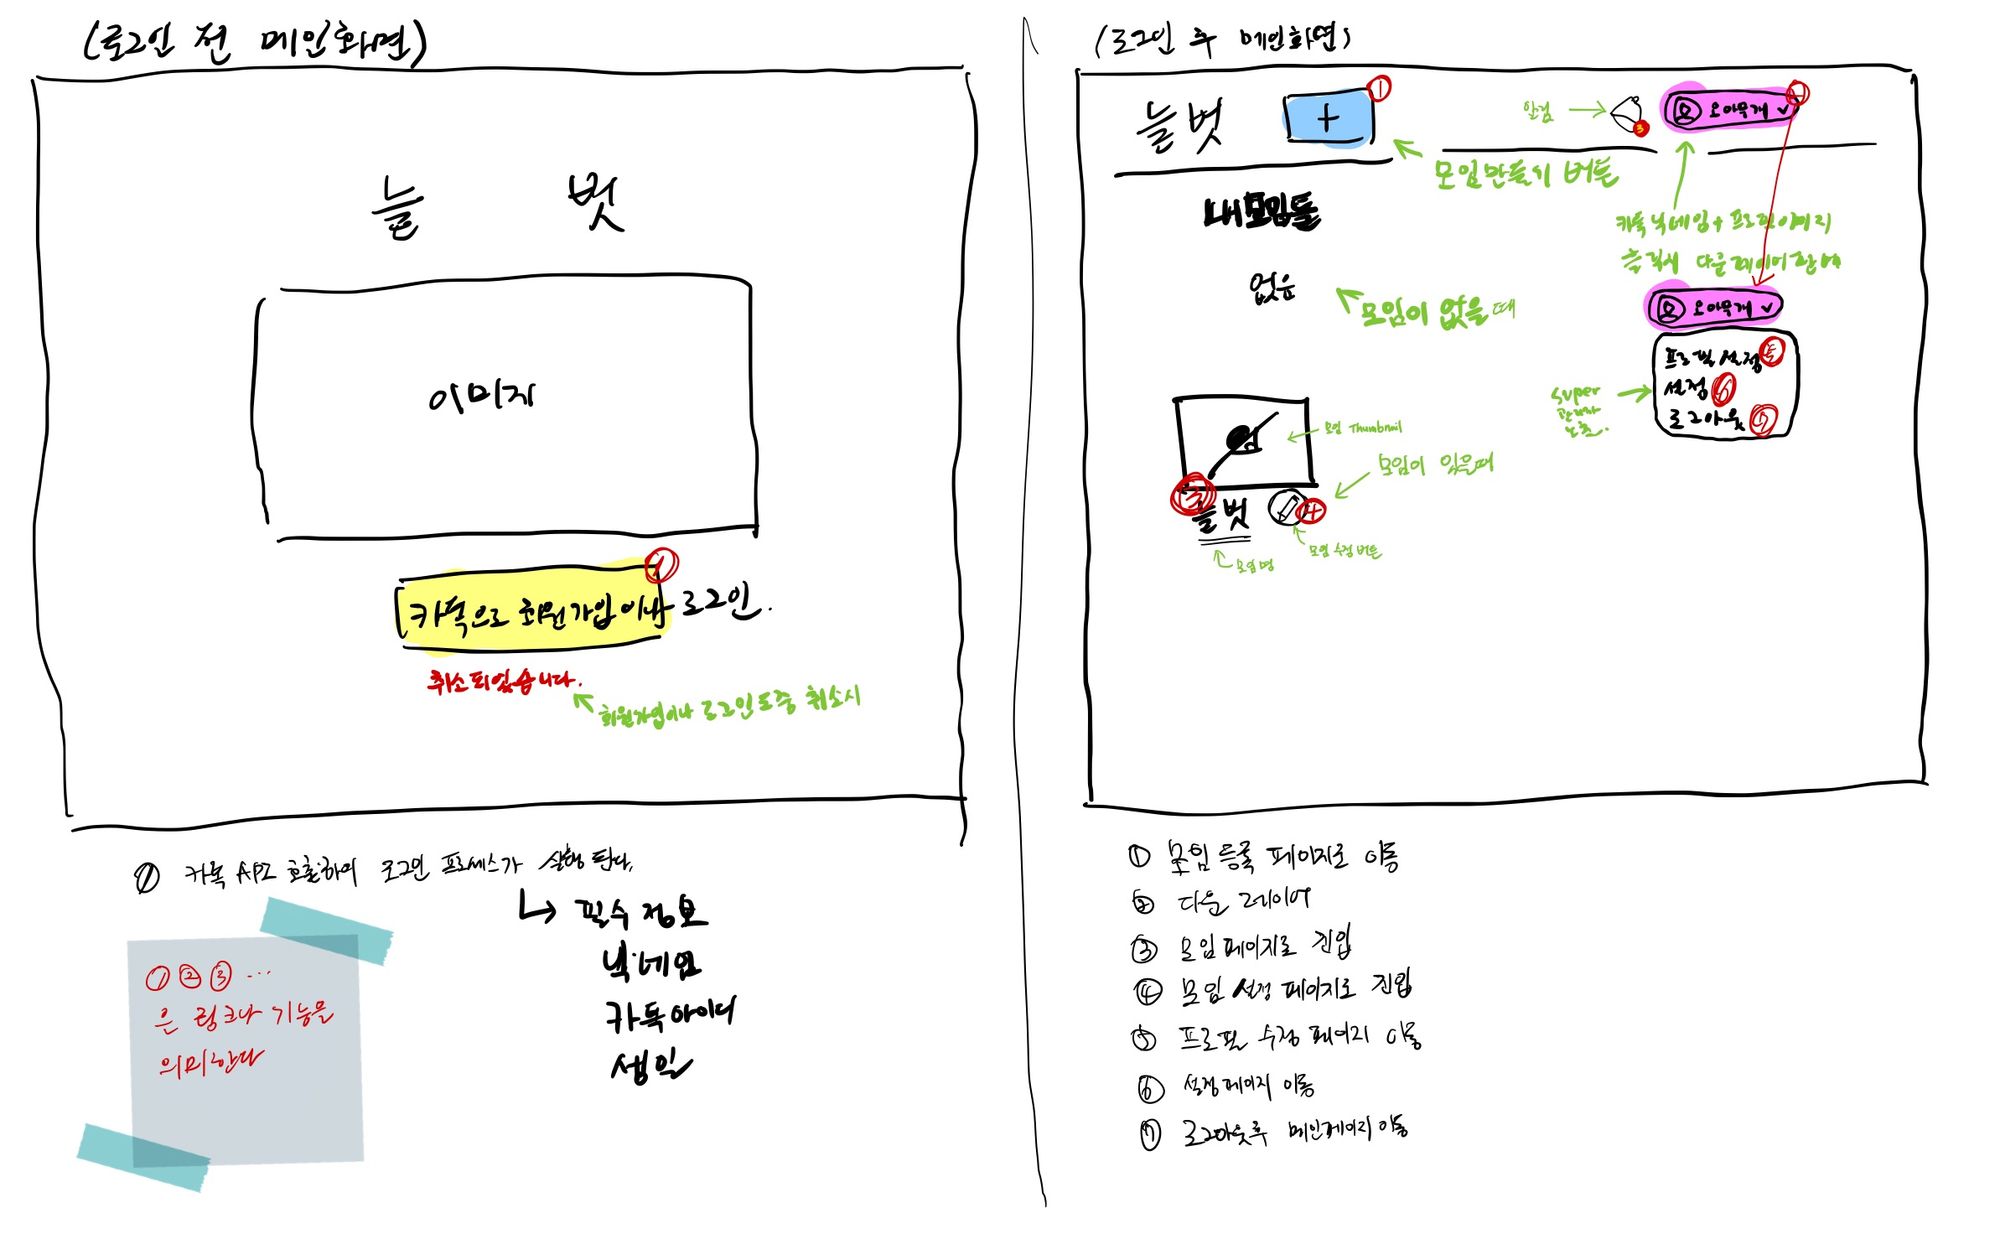 (로그인 전 메인화면)
늘 벗
이미지
①
카톡으로 회원가입이나 로그인.
취소되었습니다.
회원가입이나 로그인 도중 취소시
① 카톡 API 호출하여 로그인 프로세스가 실행 된다.
필수 정보
닉네임
카톡아이디
생일
① ② ③ ...
은 링크나 기능을
의미한다
(로그인 후 메인화면)
늘벗
+
①
모임만들기 버튼
알림
3
오아무개
카톡닉네임 + 프로필이미지
클릭시 다운레이어 판넬
내모임들
없음
모임이 없을때
오아무개
프로필 설정 ⑤
설정 ⑥
로그아웃 ⑦
super
관리자
노출.
모임 Thumbnail
모임이 있을때
③
늘벗
④
모임명
모임 수정 버튼
① 모임 등록 페이지로 이동
② 다운 레이어
③ 모임페이지로 진입
④ 모임 설정 페이지로 진입
⑤ 프로필 수정 페이지 이동
⑥ 설정페이지 이동
⑦ 로그아웃후 메인페이지 이동